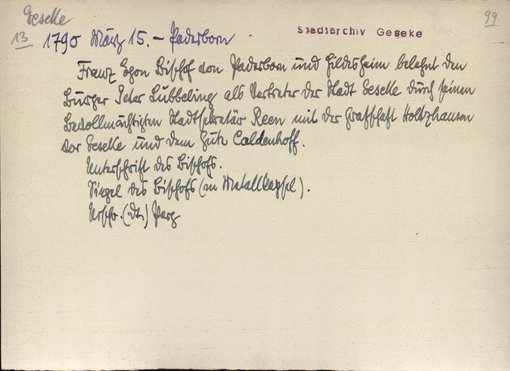 Geseke
99
Stadtarchiv Geseke
13 1790 März 15. - Paderborn
Franz Egon Bischof von Paderborn und Hildesheim belehnt den
Bürger Peter Lübbeling als Vertreter der Stadt Geseke durch seinen
bevollmächtigten Stadtsekretär Reen mit der Grafschaft Holtzhausen
vor Geseke und dem Gute Caldenhoff.
Unterschrift des Bischofs.
Siegel des Bischofs (in Metallkapsel).
Urschr. (dt.) Perg